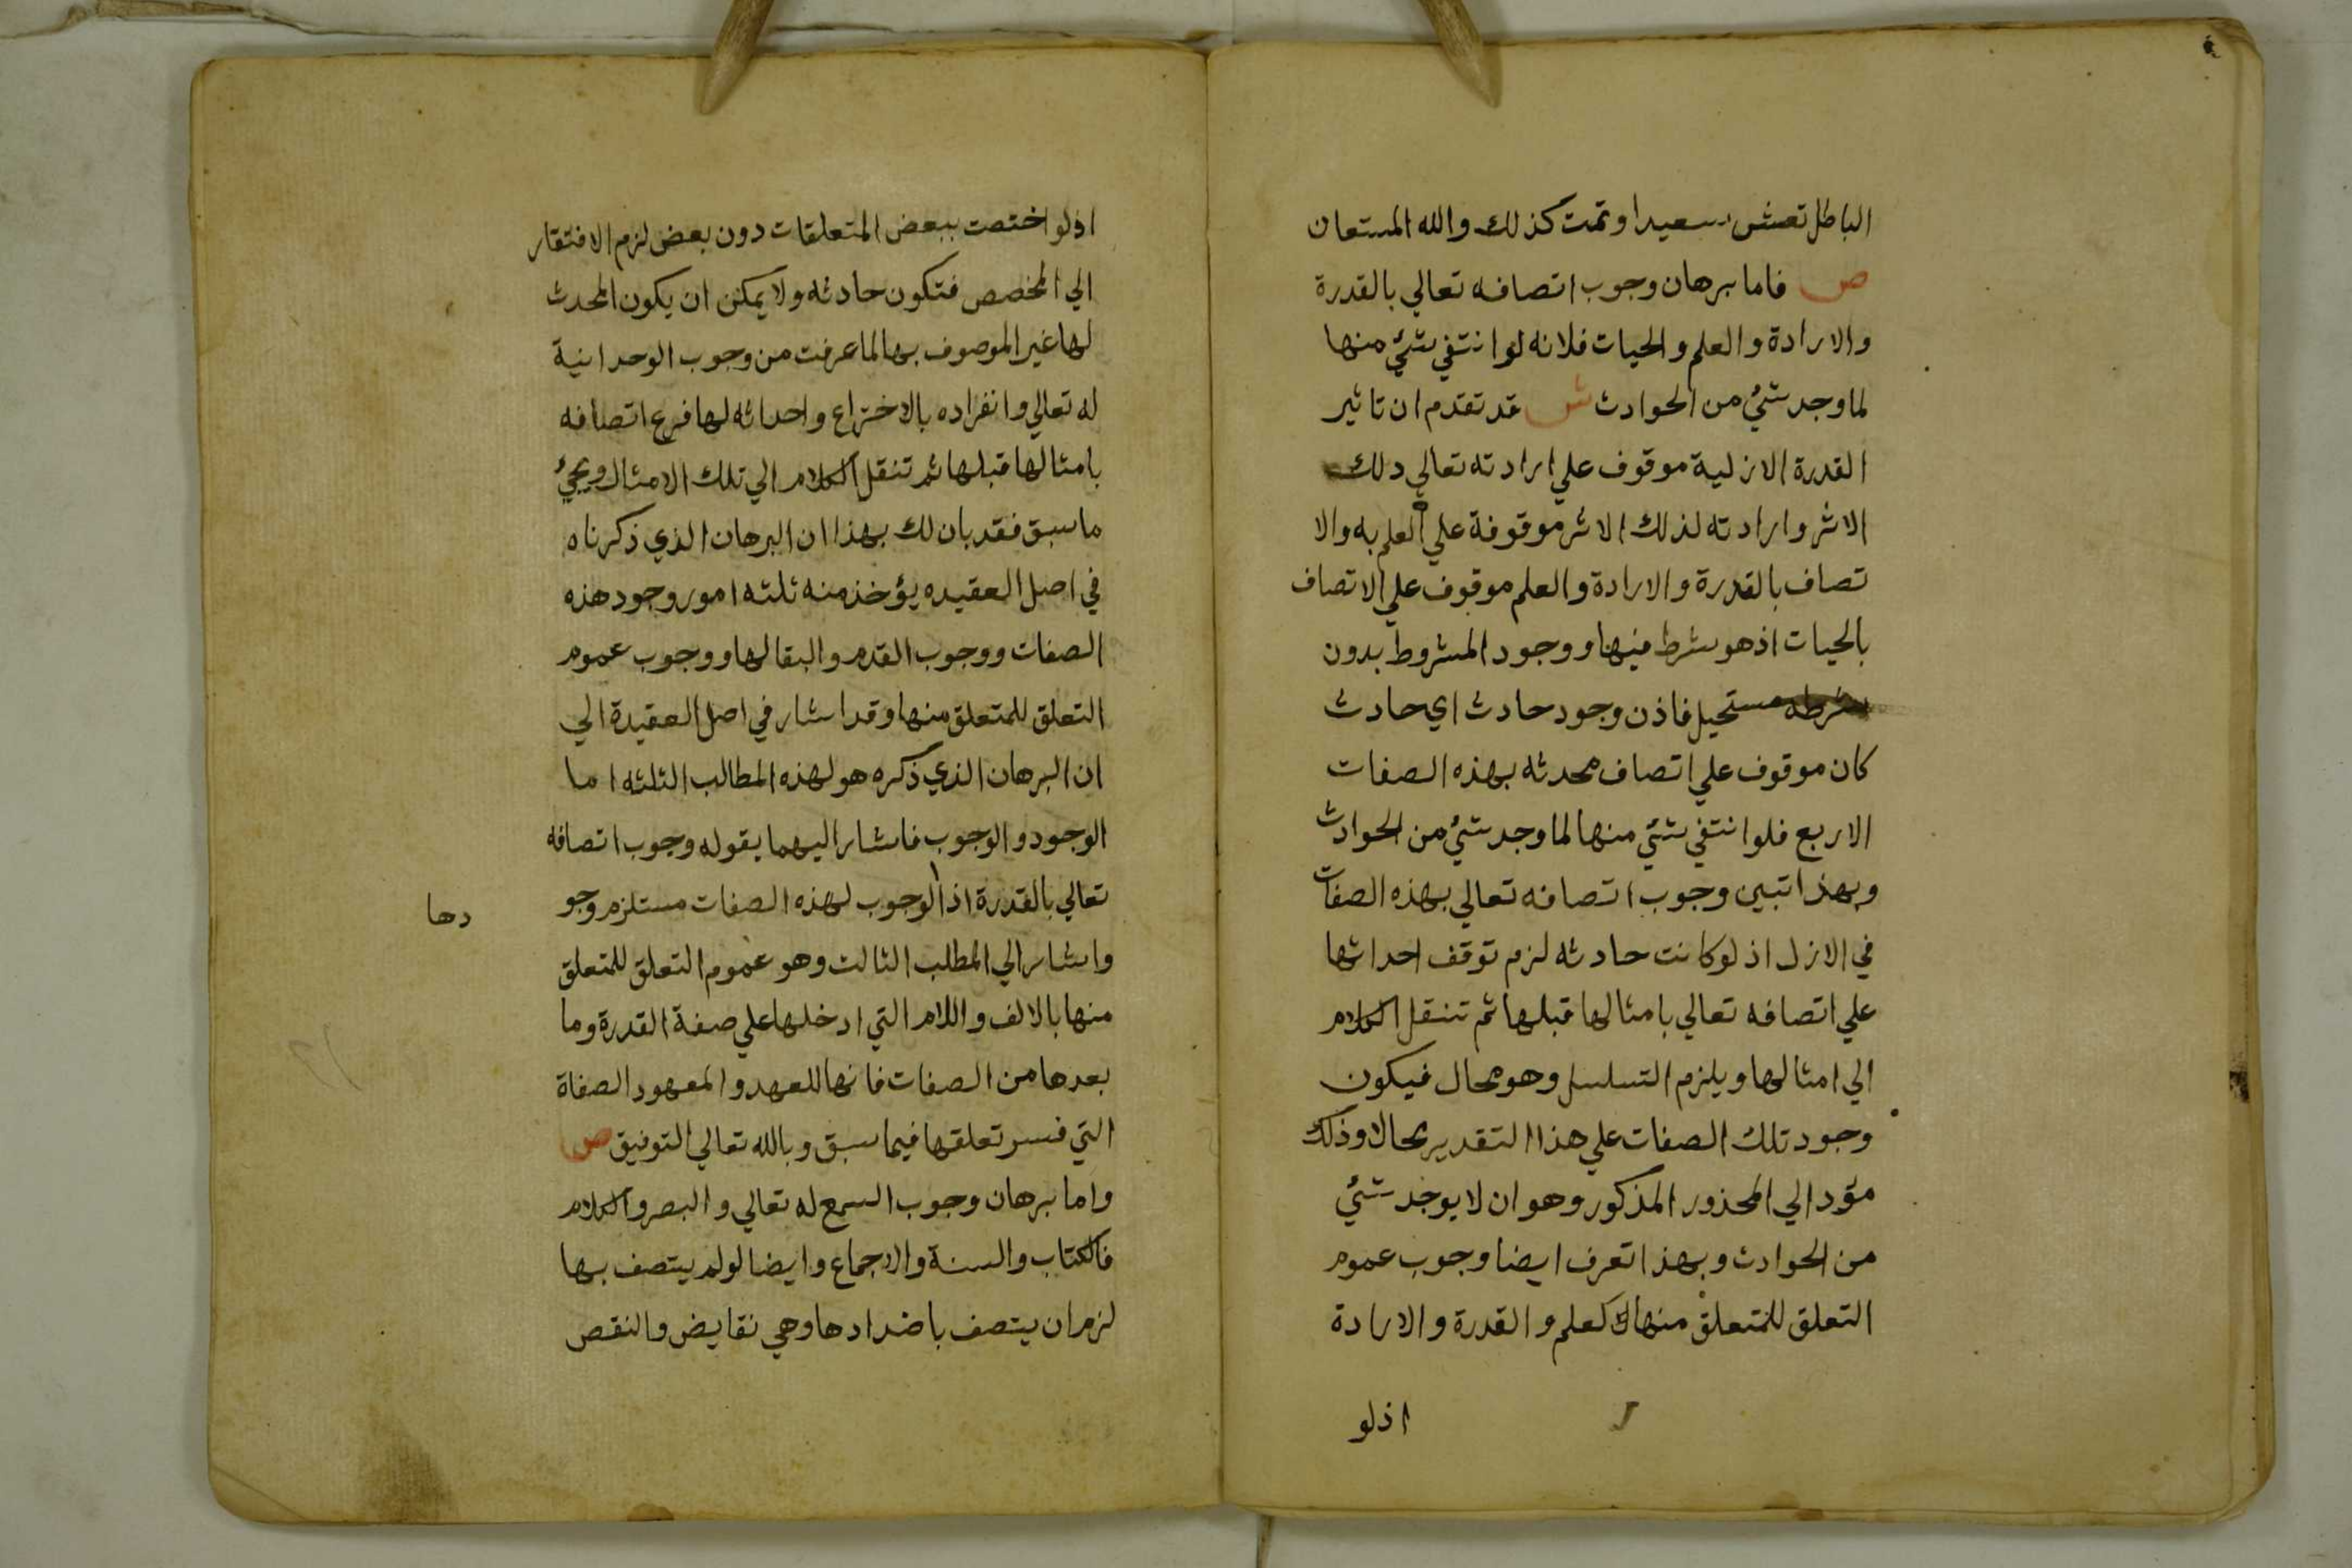 الباطل تعش سعيدا وتمت كذلك والله المستعان
ص فاما برهان وجوب اتصافه تعالي بالقدرة
والارادة والعلم والحيات فلانه لو انتفي شئ منها
لما وجد شئ من الحوادث ش قد تقدم ان تاثير
القدرة الازلية موقوف علي ارادته تعالي دلك
الاثر وارادته لذلك الاثر موقوفة علي العلم به والا
تصاف بالقدرة والارادة والعلم موقوف علي الاتصاف
بالحيات اذ هو شرط فيها ووجود المشروط بدون
شرطه مستحيل فاذن وجود حادث اي حادث
كان موقوف علي اتصاف محدثه بهذه الصفات
الاربع فلو انتفي شئ منها لما وجد شئ من الحوادث
وبهذا تبين وجوب اتصافه تعالي بهذه الصفات
في الازل اذ لو كانت حادثه لزم توقف احداثها
علي اتصافه تعالي بامثالها قبلها ثم تنقل الكلام
الي امثالها ويلزم التسلسل وهو محال فيكون
وجود تلك الصفات علي هذا التقدير محالا وذلك
مؤد الي المحذور المذكور وهو ان لا يوجد شئ
من الحوادث وبهذا تعرف ايضا وجوب عموم
التعلق للمتعلق منها كعلم والقدرة والارادة
اذلو
اذلو اختصت ببعض المتعلقات دون بعض لزم الافتقار
الي المخصص فتكون حادثه ولا يمكن ان يكون المحدث
لها غير الموصوف بها لما عرفت من وجوب الوحدانية
له تعالي وانفراده بالاختراع واحداثه لها فرع اتصافه
بامثالها قبلها ثم تنقل الكلام الي تلك الامثال ويجئ
ما سبق فقد بان لك بهذا ان البرهان الذي ذكرناه
في اصل العقيده يؤخذ منه ثلثه امور وجود هذه
الصفات ووجوب القدم والبقا لها ووجوب عموم
التعلق للمتعلق منها وقد اشار في اصل العقيدة الي
ان البرهان الذي ذكره هو لهذه المطالب الثلثه اما
الوجود والوجوب فاشار اليهما بقوله وجوب اتصافه
تعالي بالقدرة اذ الوجوب لهذه الصفات مستلزم وجو
دها
واشار الي المطلب الثالث وهو عموم التعلق للمتعلق
منها بالالف واللام التي ادخلها علي صفة القدرة وما
بعدها من الصفات فانها للعهد والمعهود الصفاة
التي فسر تعلقها فيما سبق وبالله تعالي التوفيق ص
واما برهان وجوب السمع له تعالي والبصر والكلام
فالكتاب والسنة والاجماع وايضا لو لم يتصف بها
لزم ان يتصف باضدادها وهي نقايض والنقص